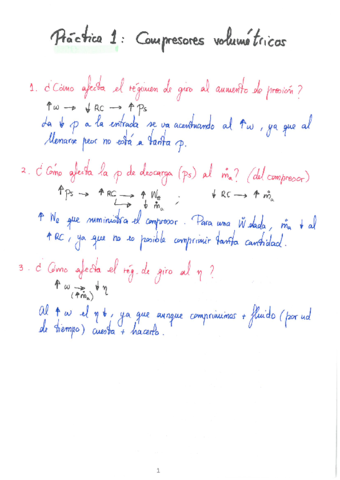 Práctica 1: Compresores volumétricos
1. ¿Cómo afecta el régimen de giro al aumento de presión?
↑ω → ↓RC → ↑ps
La ↓ p a la entrada se va acentuando al ↑ω, ya que al
llenarse peor no está a tanta p.
2. ¿Cómo afecta la p de descarga (ps) al ṁa? (del compresor)
↑ps → ↑RC → ↑We ; ↓RC → ↑ṁa
↳ ↓ṁa
↑ We que suministra el compresor. Para una Ẇ dada, ṁa ↓ al
↑RC, ya que no es posible comprimir tanta cantidad.
3. ¿Cómo afecta el rég. de giro al η?
↑ω → ↓η
(↑ṁa)
Al ↑ω el η↓, ya que aunque comprimimos + fluido (por ud
de tiempo) cuesta + hacerlo.
1